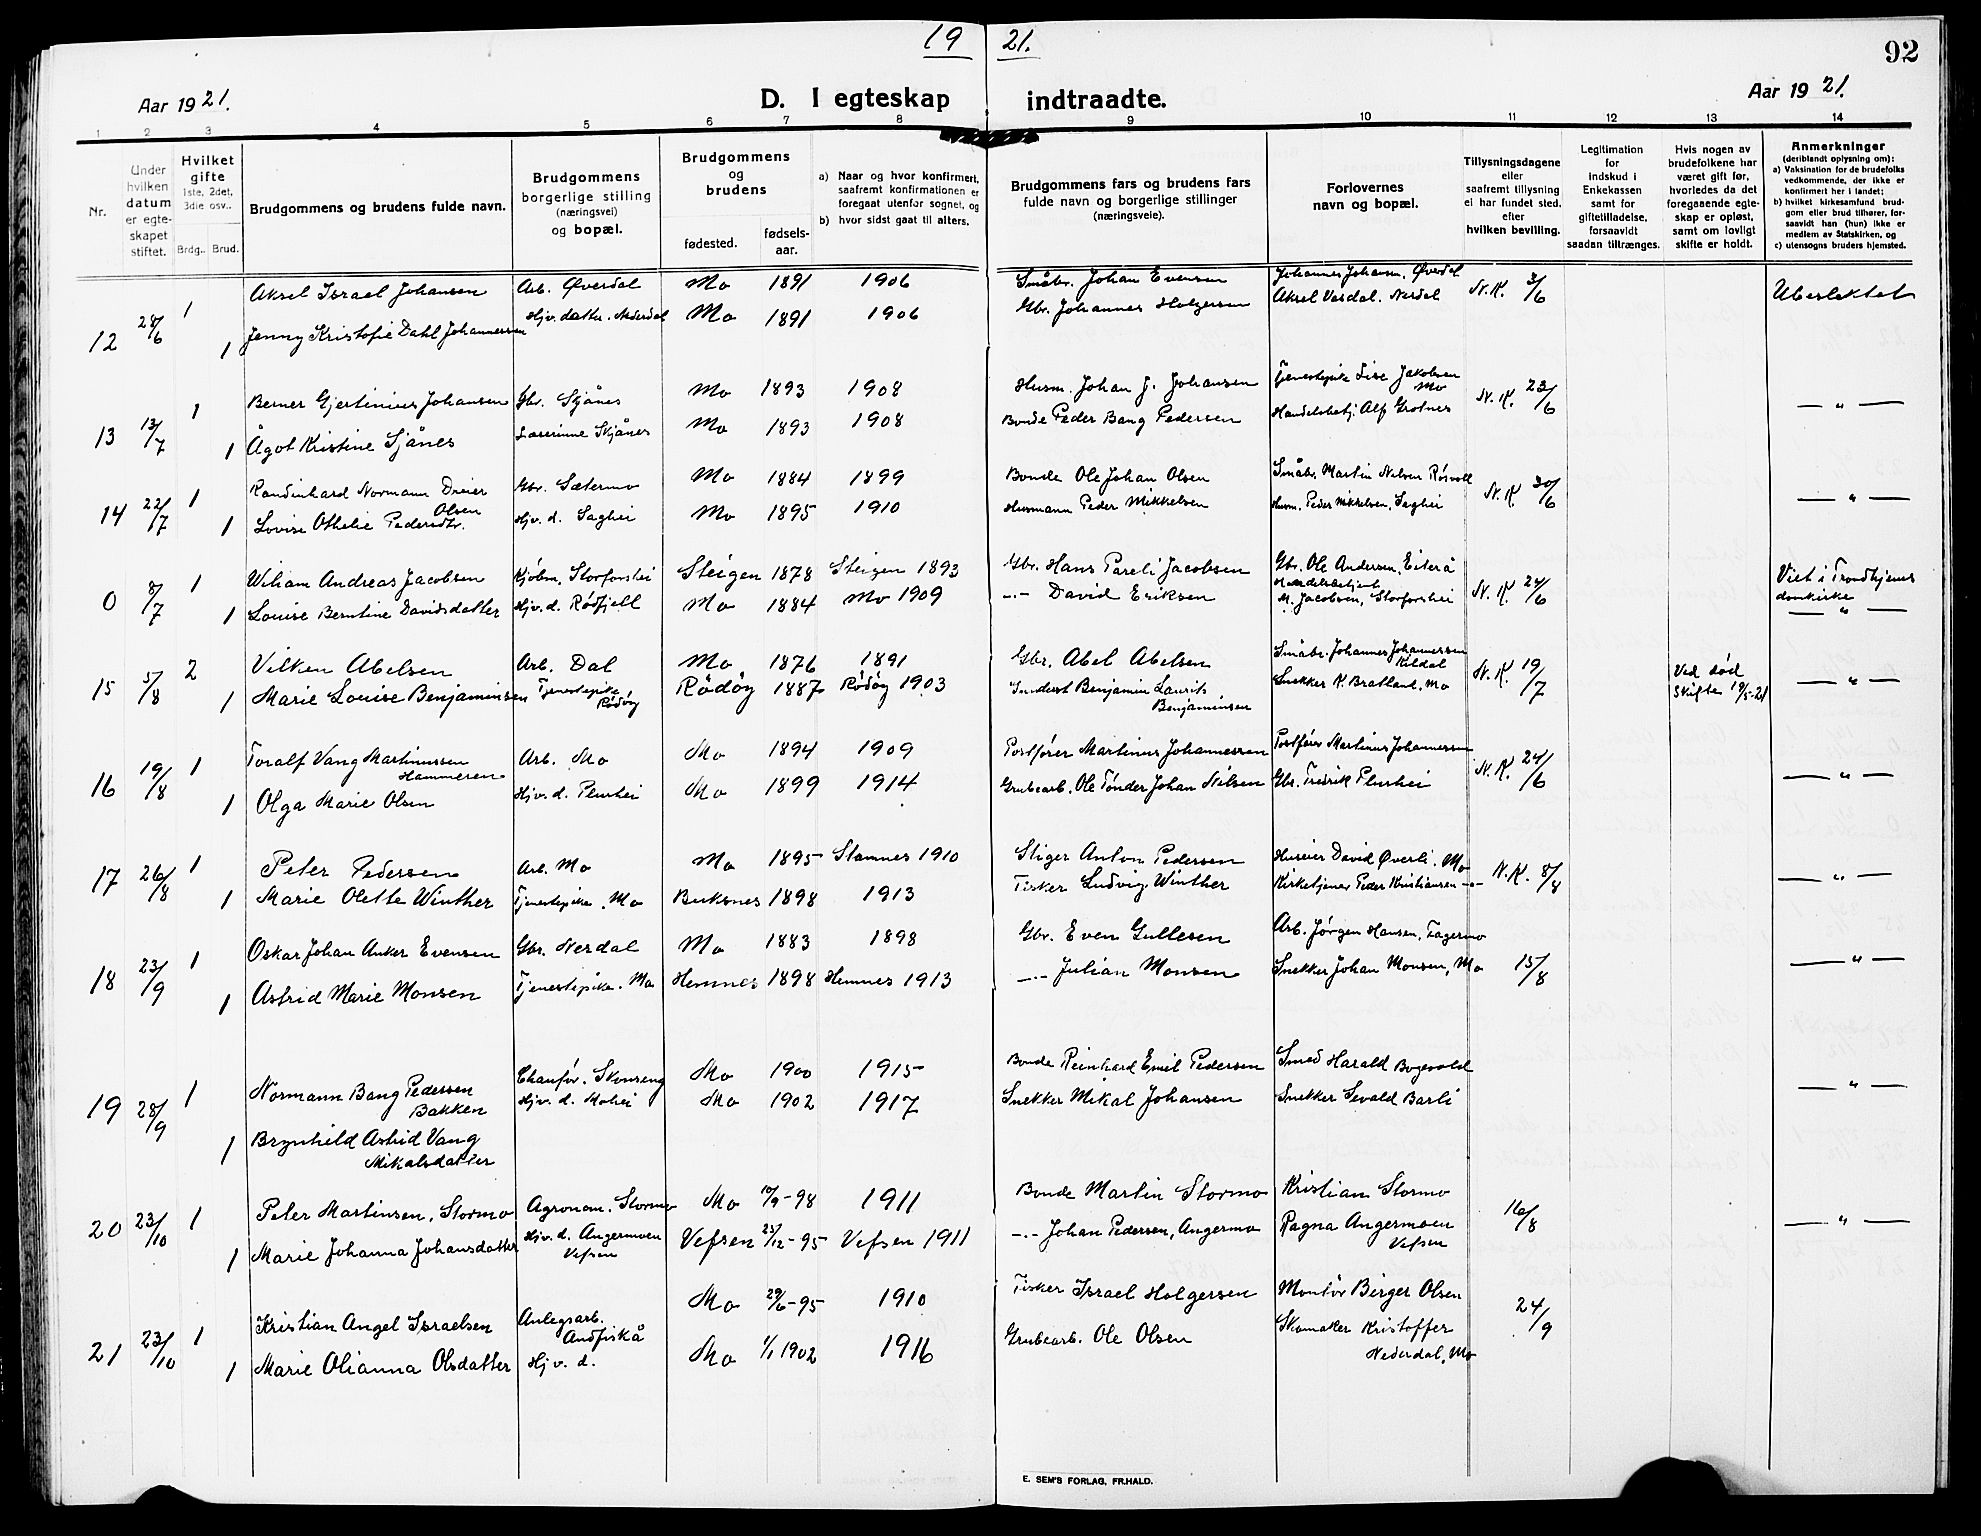 19 21.
92
Aar 1921.
D. I egteskap indtraadte.
Aar 1921.
1 2 3 4 5 6 7 8 9 10 11 12 13 14
Nr.
Under hvilken datum er egte-skapet stiftet.
Hvilket gifte 1ste, 2det, 3die osv..
Brdg.. Brud.
Brudgommens og brudens fulde navn.
Brudgommens borgerlige stilling (næringsvei) og bopæl.
Brudgommens og brudens
fødested.
fødsels-aar.
a) Naar og hvor konfirmert, saafremt konfirmationen er foregaat utenfor sognet, og
b) hvor sidst gaat til alters.
Brudgommens fars og brudens fars fulde navn og borgerlige stillinger (næringsveie).
Forlovernes navn og bopæl.
Tillysningsdagene eller saafremt tillysning ei har fundet sted. efter hvilken bevilling.
Legitimation for indskud i Enkekassen samt for giftetilladelse, forsaavidt saadan tiltrænges.
Hvis nogen av brudefolkene har været gift før, hvorledes da det foregaaende egte-skap er opløst, samt om lovligt skifte er holdt.
Anmerkninger (deriblandt oplysning om):
a) Vaksination for de brudefolks vedkommende, der ikke er konfirmert her i landet;
b) hvilket kirkesamfund brud-gom eller brud tilhører, for-saavidt han (hun) ikke er medlem av Statskirken, og
c) utensogns bruders hjemsted.
12 28/6 1 Aksel Israel Johansen Arb. Øverdal Mo 1891 1906 Småbr. Johan Evensen Johannes Johansen, Øverdal N.K. 3/6 Ubeslektet
1 Jenny Kristofie Dahl Johannessen Hjv. datter. Nederdal Mo 1891 1906 Gbr. Johannes Holgersen Aksel Verdal. Nerdal
13 13/7 1 Berner Gjertinius Johansen Gbr. Skjånes Mo 1893 1908 Husm. Johan J. Johansen Tjenestepike Lise Jakobsen Mo N.K. 23/6 — " —
1 Ågot Kristine Sjånes Lærerinne Skjånes Mo 1893 1908 Bonde Peder Bang Pedersen Handelsbetj. Alf Grotnes
14 22/7 1 Randinhard Normann Dreier Olsen Gbr. Sætermo Mo 1884 1899 Bonde Ole Johan Olsen Småbr. Martin Nilsen Røsvoll N.K. 30/6 — " —
1 Lovise Othelie Pedersdtr. Hjv. d. Saghei Mo 1895 1910 Husmann Peder Mikkelsen Husm. Peder Mikkelsen, Saghei
0 8/7 1 Wiliam Andreas Jacobsen Kjøbm. Storforshei Steigen 1878 Steigen 1893 Gbr. Hans Pareli Jacobsen Gbr. Ole Andersen, Eiterå N.K. 24/6 Viet i Trondhjems domkirke
1 Louise Berntine Davidsdatter Hjv. d. Røfjell Mo 1884 Mo 1909 -"- David Eriksen Handelsbetjent M. Jacobsen, Storforshei — " —
15 5/8 2 Vilken Abelsen Arb. Dal Mo 1876 1891 Gbr. Abel Abelsen Småbr. Johannes Johannessen Kildal N.K. 19/7 Ved død Skifte 19/5-21 — " —
1 Marie Louise Benjaminsen Tjenestepike Rødøy Rødøy 1887 Rødøy 1903 Benjamin Laurits Benjaminsen Snekker K. Bratland, Mo
16 19/8 1 Toralf Vang Martinussen Hammeren Arb. Mo Mo 1894 1909 Postfører Martinus Johannessen Postfører Martinus Johannessen N.K. 24/6 — " —
1 Olga Marie Olsen Hjv. d. Plurhei Mo 1899 1914 Grubearb. Ole Tønder Johan Nilsen Gbr. Fredrik Plurhei
17 26/8 1 Peter Pedersen Arb. Mo Mo 1895 Stamnes 1910 Stiger Anton Pedersen Huseier David Øverli. Mo N.K. 8/8 — " —
1 Marie Olette Winther Tjenestepike. Mo Buksnes 1898 1913 Fisker Ludvig Winther Kirketjener Peder Kristiansen -"-
18 23/9 1 Oskar Johan Anker Evensen Gbr. Nerdal Mo 1883 1898 Gbr. Even Gullesen Arb. Jørgen Hansen, Fagermo 15/8 — " —
1 Astrid Marie Monsen Tjenestepike. Mo Hemnes 1898 Hemnes 1913 -"- Julian Monsen Snekker Johan Monsen, Mo
19 28/9 1 Normann Bang Pedersen Bakken Chaufør. Skonseng Mo 1900 1915 Bonde Reinhard Emil Pedersen Smed Harald — " —
1 Brynhild Astrid Vang Mikalsdatter Hjv. d. Mohei Mo 1902 1917 Snekker Mikal Johansen Snekker Sevald Barli
20 23/10 1 Peter Martinsen, Stormo Agronom. Stormo Mo 10/9-98 1911 Bonde Martin Stormo Kristian Stormo 16/8 — " —
1 Marie Johanna Johansdatter Hjv. d. Angermoen Vefsen Vefsen 25/12-95 Vefsen 1911 -"- Johan Pedersen, Angermo Ragna Angermoen Vefsen
21 23/10 1 Kristian Angel Israelsen Anlegsarb. Andfiskå Mo 29/6-95 1910 Fisker Israel Holgersen Montør Birger Olsen 24/9
1 Marie Olianna Olsdatter Hjv. d. Mo 1/1 1902 1916 Grubearb. Ole Olsen Skomaker Kristoffer Nederdal, Mo
E. SEM'S FORLAG, FR.HALD.